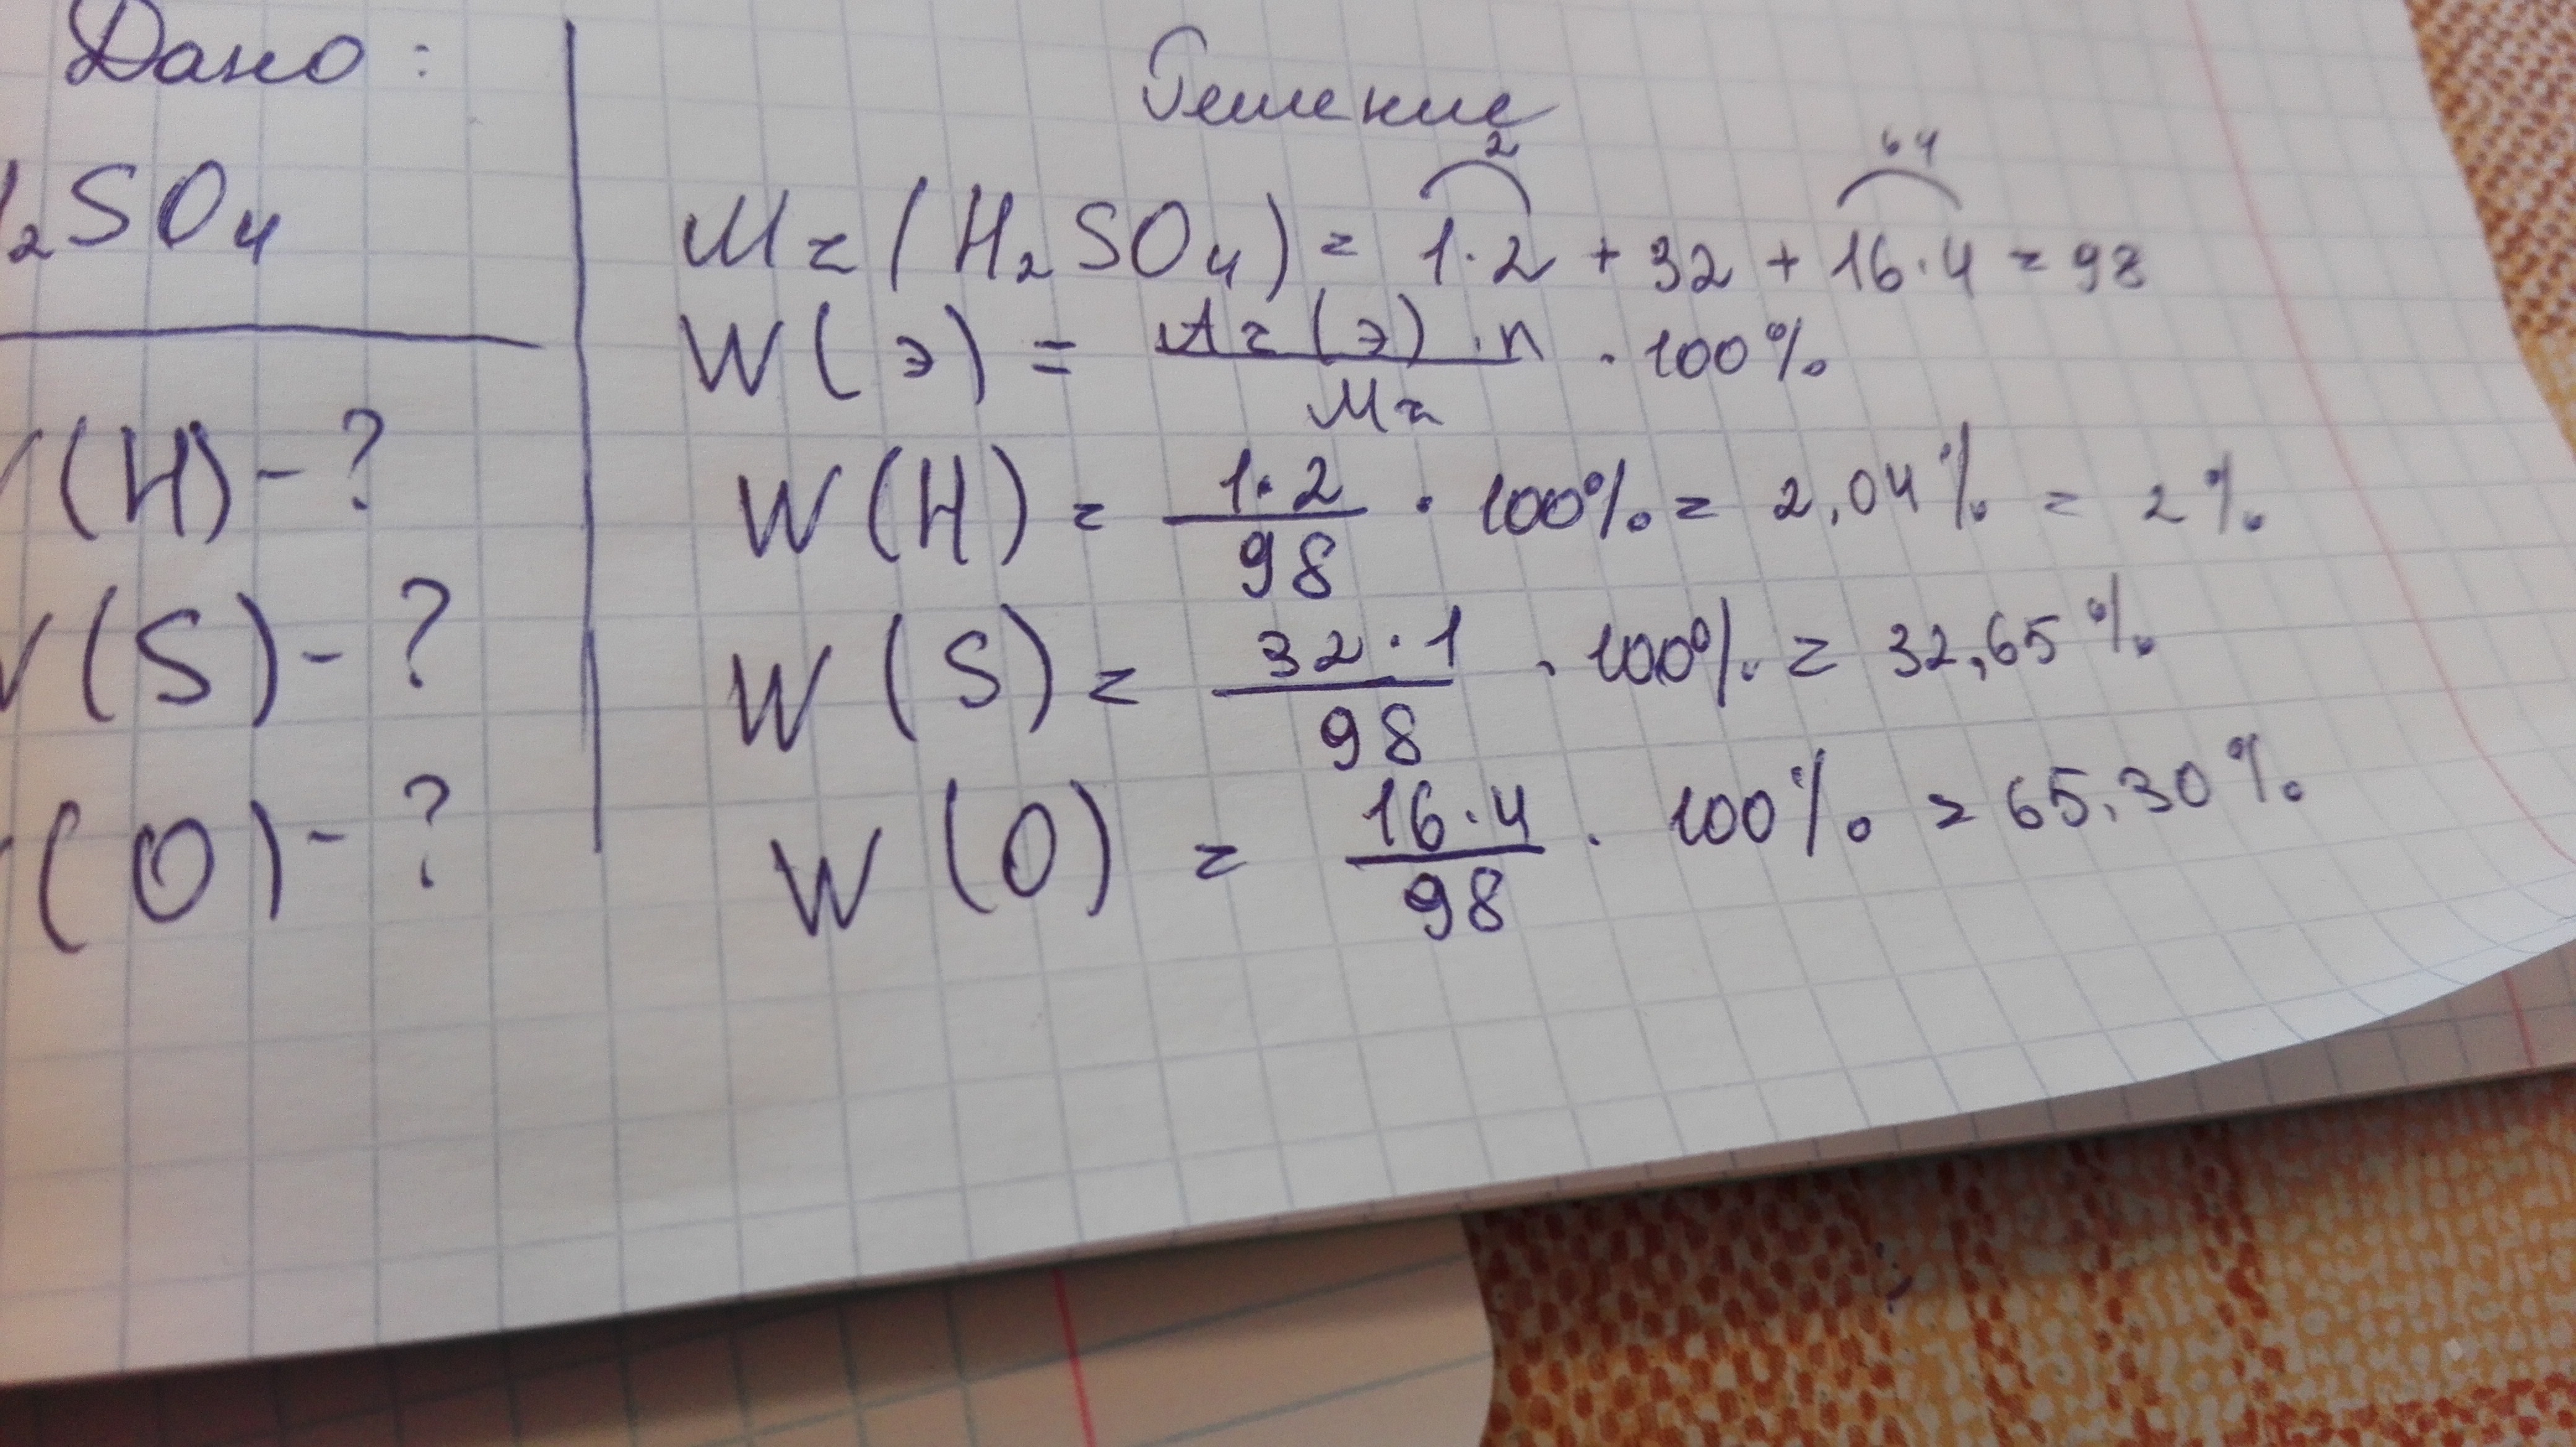 Дано:
₂SO₄
(H) - ?
(S) - ?
(O) - ?
Решение
2 64
Mr (H₂SO₄) = 1·2 + 32 + 16·4 = 98
W(э) = Ar(э)·n / Mr · 100%
W(H) = 1·2 / 98 · 100% = 2,04% = 2%
W(S) = 32·1 / 98 · 100% = 32,65%
W(O) = 16·4 / 98 · 100% = 65,30%